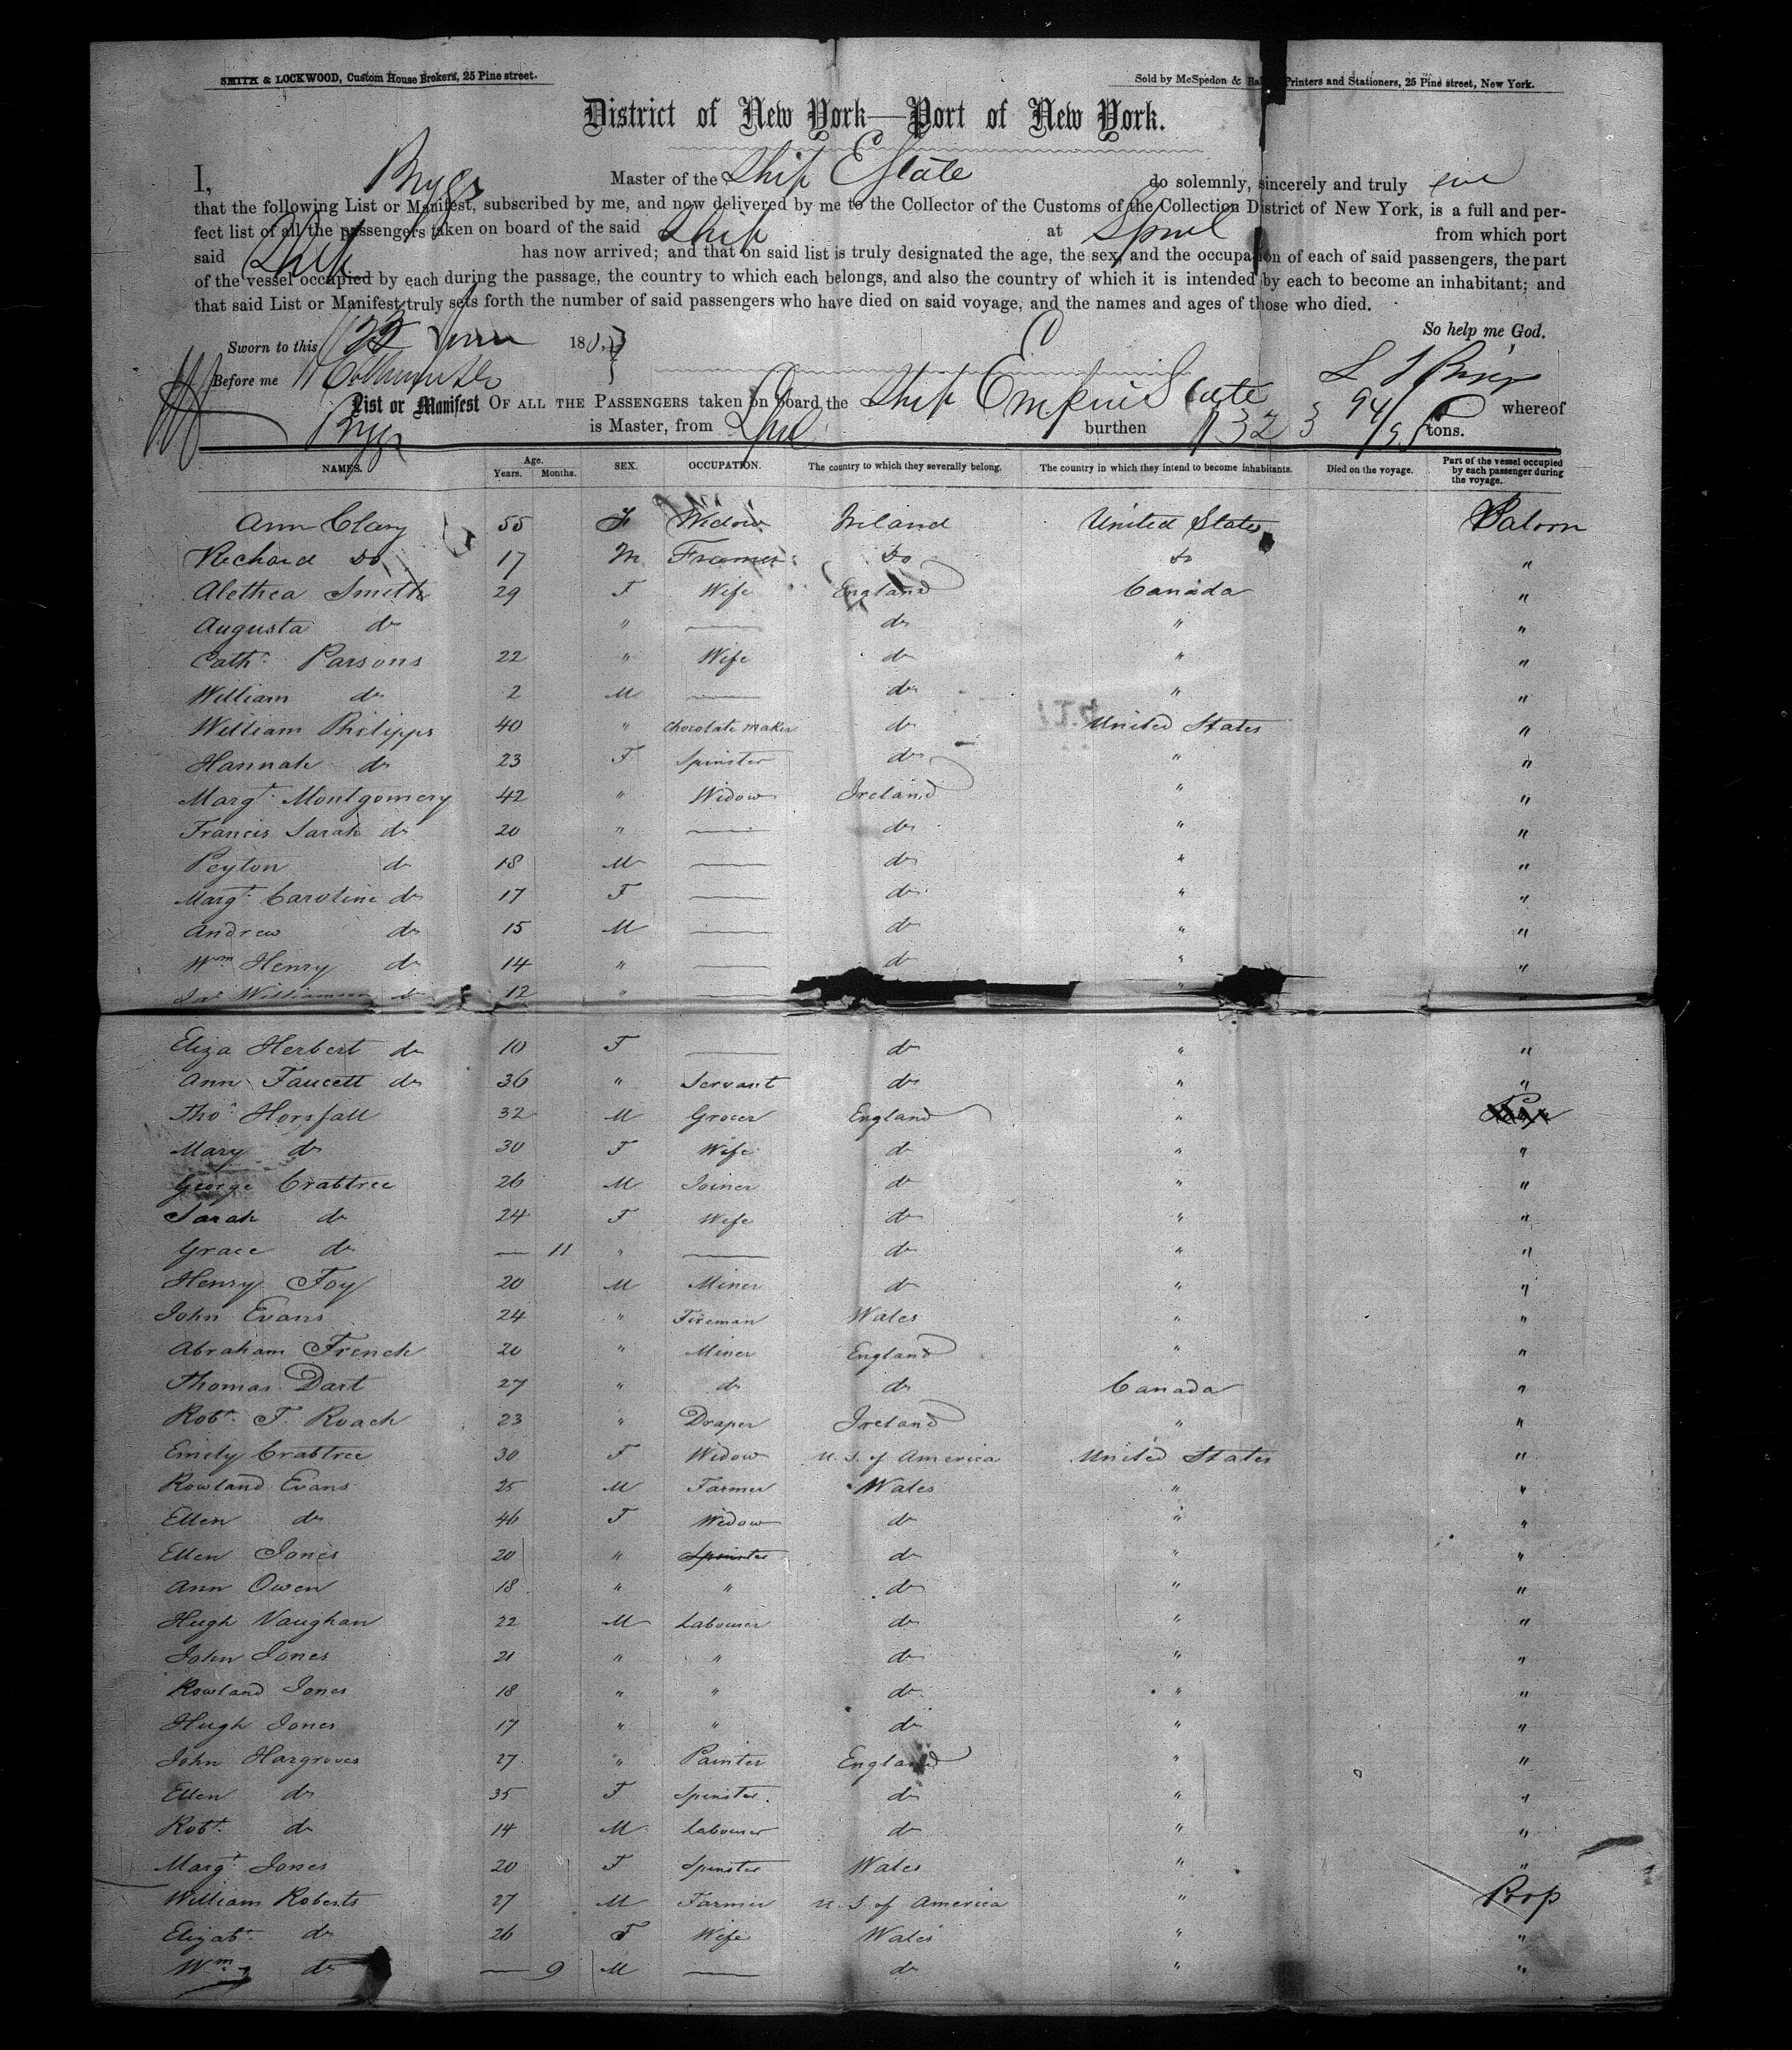 SMITH & LOCKWOOD, Custom House Brokers, 25 Pine street.
Sold by McSpedon & Printers and Stationers, 25 Pine street, New York.
District of New York—Port of New York.
I, Master of the Ship E State do solemnly, sincerely and truly
that the following List or Manifest, subscribed by me, and now delivered by me to the Collector of the Customs of the Collection District of New York, is a full and per-
fect list of all the passengers taken on board of the said Ship at from which port
said Ship has now arrived; and that on said list is truly designated the age, the sex, and the occupation of each of said passengers, the part
of the vessel occupied by each during the passage, the country to which each belongs, and also the country of which it is intended by each to become an inhabitant; and
that said List or Manifest truly sets forth the number of said passengers who have died on said voyage, and the names and ages of those who died.
So help me God.
Sworn to this 22 June 18
Before me
List or Manifest OF ALL THE PASSENGERS taken on board the Ship Empire State whereof
is Master, from burthen 1323 94/95 tons.
NAMES. Age. Years. Months. SEX. OCCUPATION. The country to which they severally belong. The country in which they intend to become inhabitants. Died on the voyage. Part of the vessel occupied by each passenger during the voyage.
Ann Clary 55 F Widow Ireland United States Saloon
Richard Do 17 M Framer Do do "
Alethea Smith 29 F Wife England Canada "
Augusta do " — do " "
Cath. Parsons 22 " Wife do " "
William do 2 M — do " "
William Philipps 40 " Chocolate maker do United States "
Hannah do 23 F Spinster do " "
Margt. Montgomery 42 " Widow Ireland " "
Francis Sarah do 20 " — do " "
Peyton do 18 M — do " "
Margt. Caroline do 17 F — do " "
Andrew do 15 M — do " "
Wm Henry do 14 " — do " "
Jas Williamson do 12 " — " "
Eliza Herbert do 10 F — do " "
Ann Faucett do 36 " Servant do " "
Thos. Horsfall 32 M Grocer England "
Mary do 30 F Wife do " "
George Crabtree 26 M Joiner do " "
Sarah do 24 F Wife do " "
Grace do — 11 " — do " "
Henry Foy 20 M Miner do " "
John Evans 24 " Fireman Wales " "
Abraham French 20 " Miner England " "
Thomas Dart 27 " do do Canada "
Robt. T. Roach 23 " Draper Ireland " "
Emily Crabtree 30 F Widow U. S. of America United States "
Rowland Evans 25 M Farmer Wales " "
Ellen do 46 F Widow do " "
Ellen Jones 20 " Spinster do " "
Ann Owen 18 " " do " "
Hugh Vaughan 22 M Labourer do " "
John Jones 21 " " do " "
Rowland Jones 18 " " do " "
Hugh Jones 17 " " do " "
John Hargroves 27 " Painter England " "
Ellen do 35 F Spinster do " "
Robt. do 14 M Labourer do " "
Margt. Jones 20 F Spinster Wales " "
William Roberts 27 M Farmer U. S. of America " Poop
Elizabt. do 26 F Wife Wales " "
Wm do — 9 M — do " "